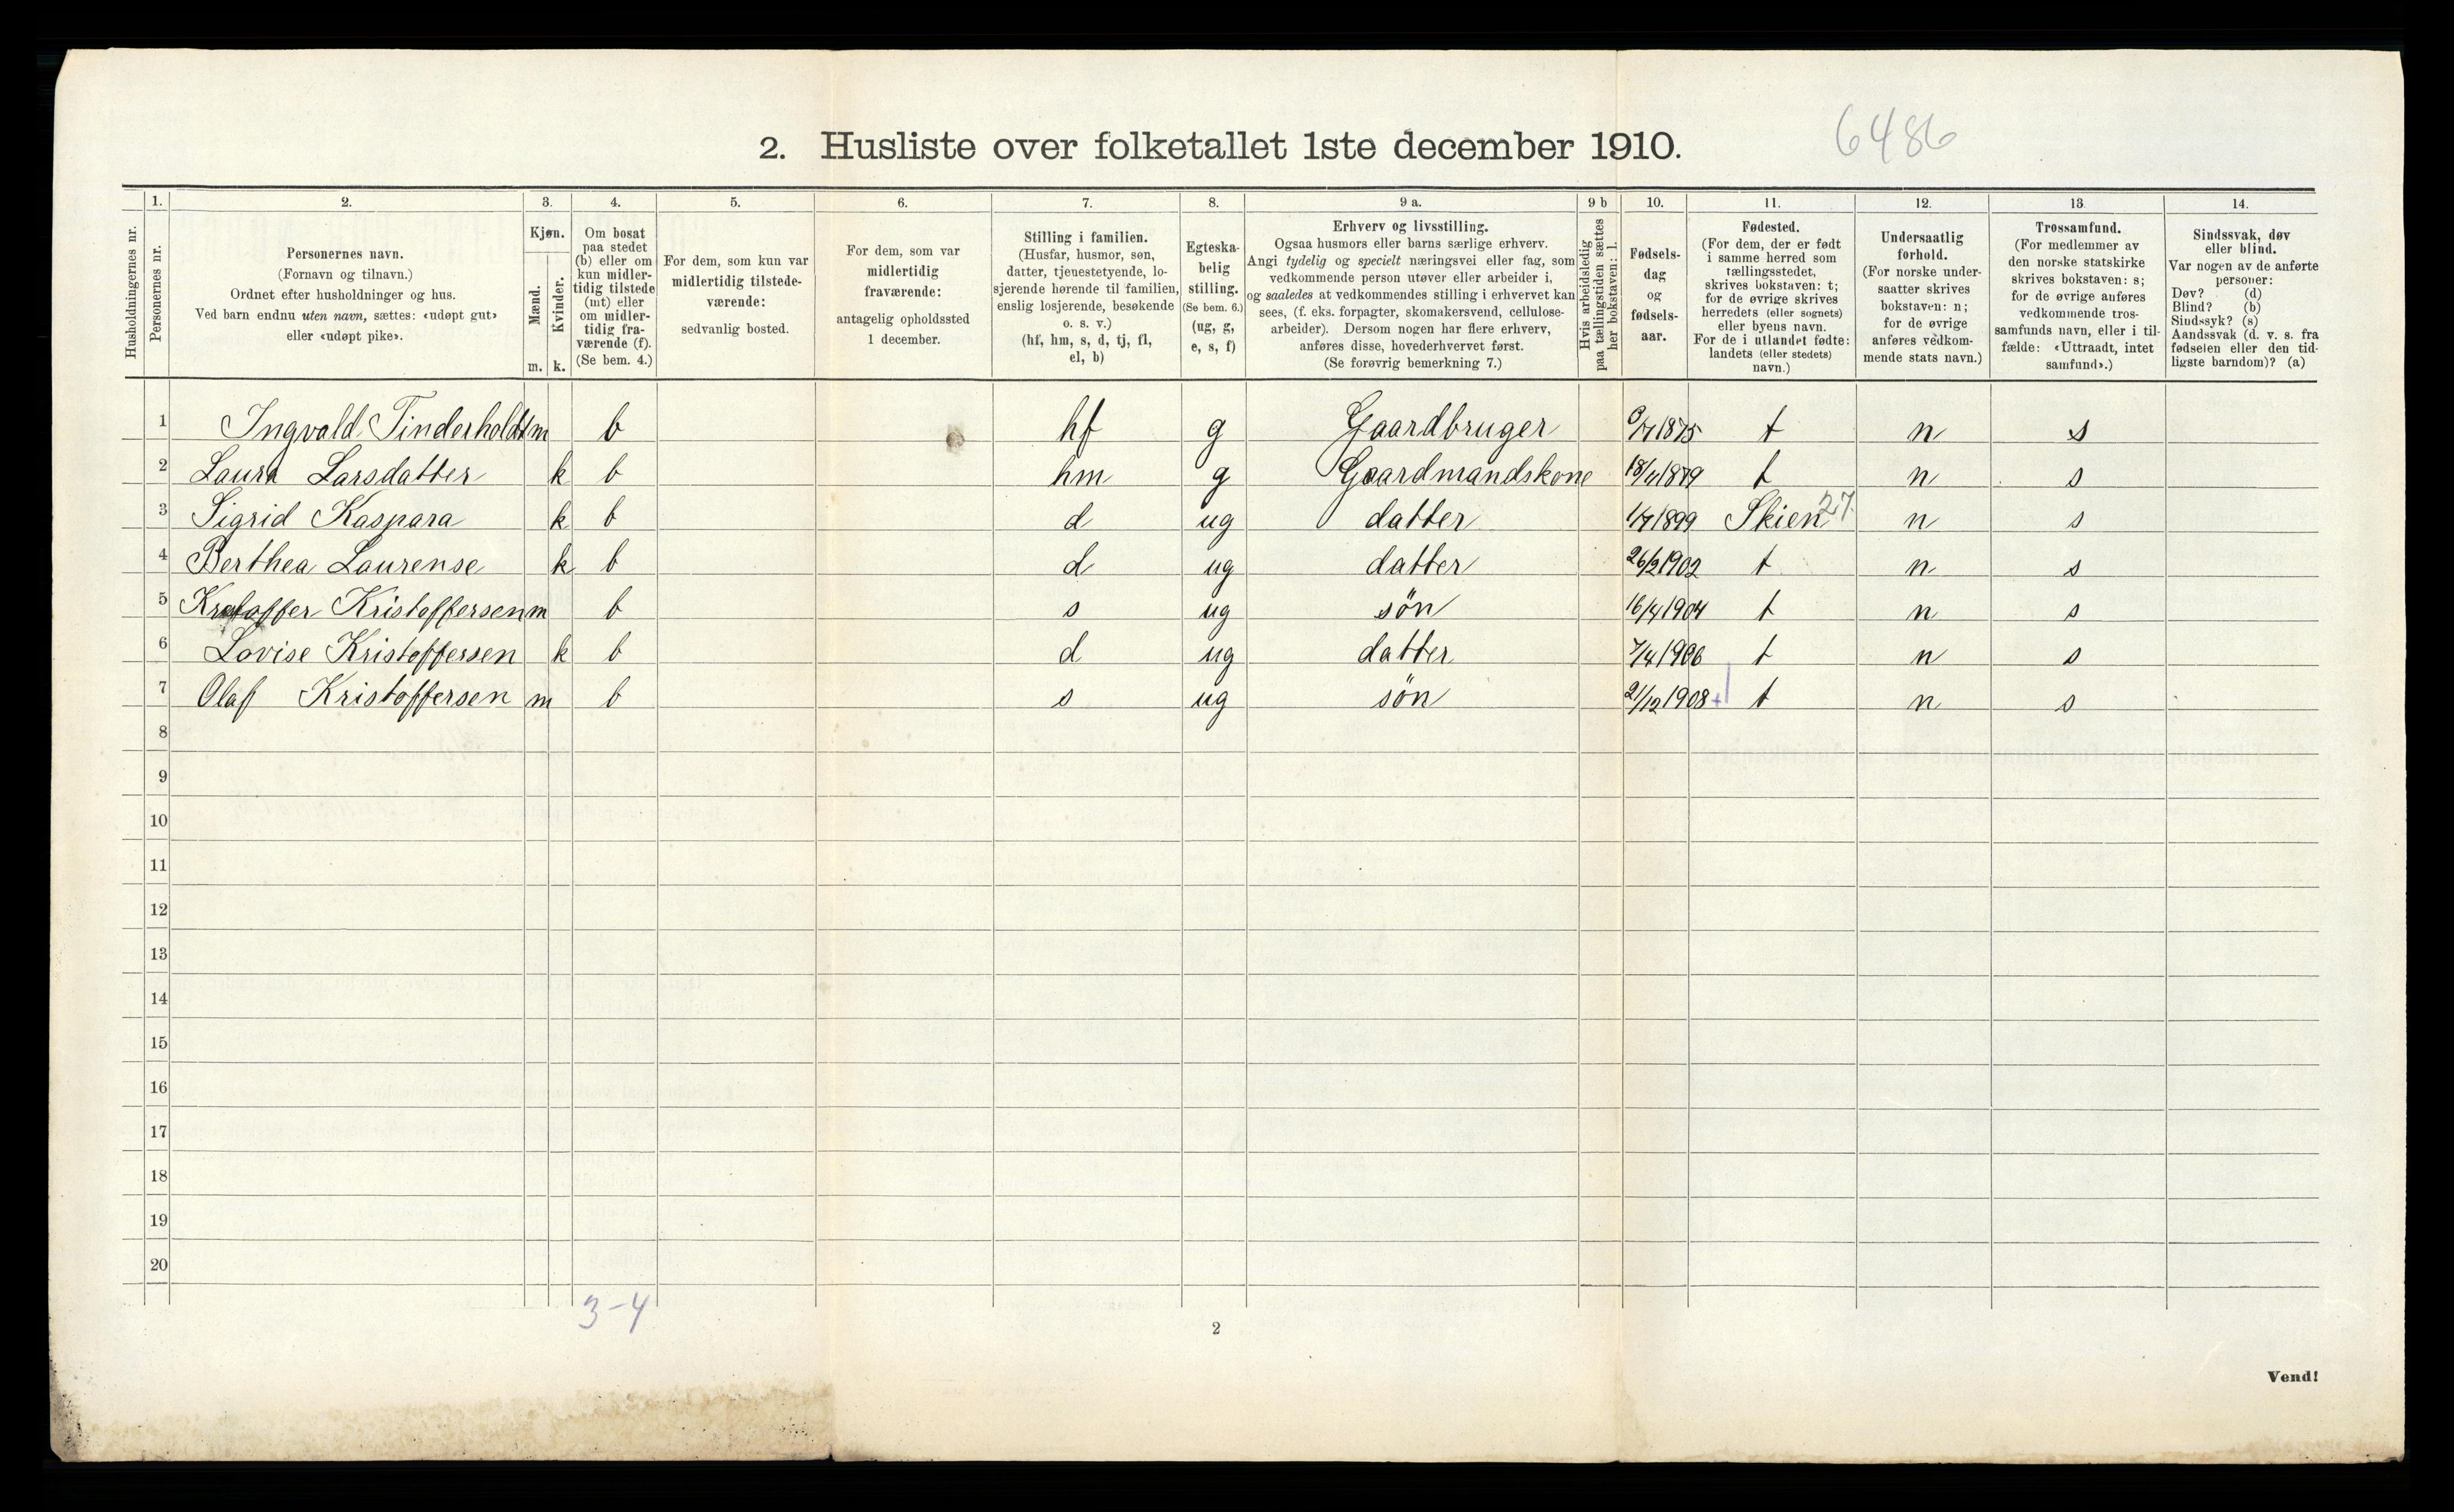 6486
2. Husliste over folketallet 1ste december 1910.
1. 2. 3. 4. 5. 6. 7. 8. 9 a. 9 b 10. 11. 12. 13. 14.
Husholdningernes nr.
Personernes nr.
Personernes navn.
(Fornavn og tilnavn.)
Ordnet efter husholdninger og hus.
Ved barn endnu uten navn, sættes: «udøpt gut»
eller «udøpt pike».
Kjøn.
Mænd.
Kvinder.
m. k.
Om bosat
paa stedet
(b) eller om
kun midler-
tidig tilstede
(mt) eller
om midler-
tidig fra-
værende (f).
(Se bem. 4.)
For dem, som kun var
midlertidig tilstede-
værende:
sedvanlig bosted.
For dem, som var
midlertidig
fraværende:
antagelig opholdssted
1 december.
Stilling i familien.
(Husfar, husmor, søn,
datter, tjenestetyende, lo-
sjerende hørende til familien,
enslig losjerende, besøkende
o. s. v.)
(hf, hm, s, d, tj, fl,
el, b)
Egteska-
belig
stilling.
(Se bem. 6.)
(ug, g,
e, s, f)
Erhverv og livsstilling.
Ogsaa husmors eller barns særlige erhverv.
Angi tydelig og specielt næringsvei eller fag, som
vedkommende person utøver eller arbeider i,
og saaledes at vedkommendes stilling i erhvervet kan
sees, (f. eks. forpagter, skomakersvend, cellulose-
arbeider). Dersom nogen har flere erhverv,
anføres disse, hovederhvervet først.
(Se forøvrig bemerkning 7.)
Hvis arbeidsledig
paa tællingstiden sættes
her bokstaven: l.
Fødsels-
dag
og
fødsels-
aar.
Fødested.
(For dem, der er født
i samme herred som
tællingsstedet,
skrives bokstaven: t;
for de øvrige skrives
herredets (eller sognets)
eller byens navn.
For de i utlandet fødte:
landets (eller stedets)
navn.)
Undersaatlig
forhold.
(For norske under-
saatter skrives
bokstaven: n;
for de øvrige
anføres vedkom-
mende stats navn.)
Trossamfund.
(For medlemmer av
den norske statskirke
skrives bokstaven: s;
for de øvrige anføres
vedkommende tros-
samfunds navn, eller i til-
fælde: «Uttraadt, intet
samfund».)
Sindssvak, døv
eller blind.
Var nogen av de anførte
personer:
Døv? (d)
Blind? (b)
Sindssyk? (s)
Aandssvak (d. v. s. fra
fødselen eller den tid-
ligste barndom)? (a)
1 Ingvald Tinderholdt m b hf g Gaardbruger 1875 t n s
2 Laura Larsdatter k b hm g Gaardmandskone 1879 t n s
3 Sigrid Kaspara k b d ug datter 1/7 1899 Skien 27 n s
4 Berthea Laurense k b d ug datter 26/2 1902 t n s
5 Kristoffer Kristoffersen m b s ug søn 16/4 1904 t n s
6 Lovise Kristoffersen k b d ug datter 7/4 1906 t n s
7 Olaf Kristoffersen m b s ug søn 21/12 1908 + t n s
8
9
10
11
12
13
14
15
16
17
18
19
20
3-4
2
Vend!